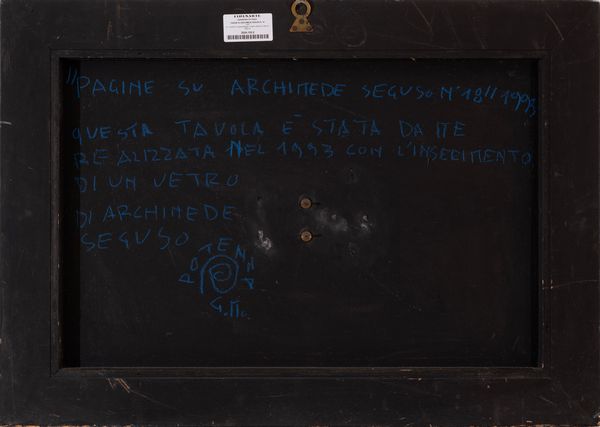 FIDESARTE
"PAGINE SU ARCHIMEDE SEGUSO N° 18" 1993
QUESTA TAVOLA È STATA DA ME
REALIZZATA NEL 1993 CON L'INSERIMENTO
DI UN VETRO
DI ARCHIMEDE
SEGUSO
POTENNA
G.Mo.